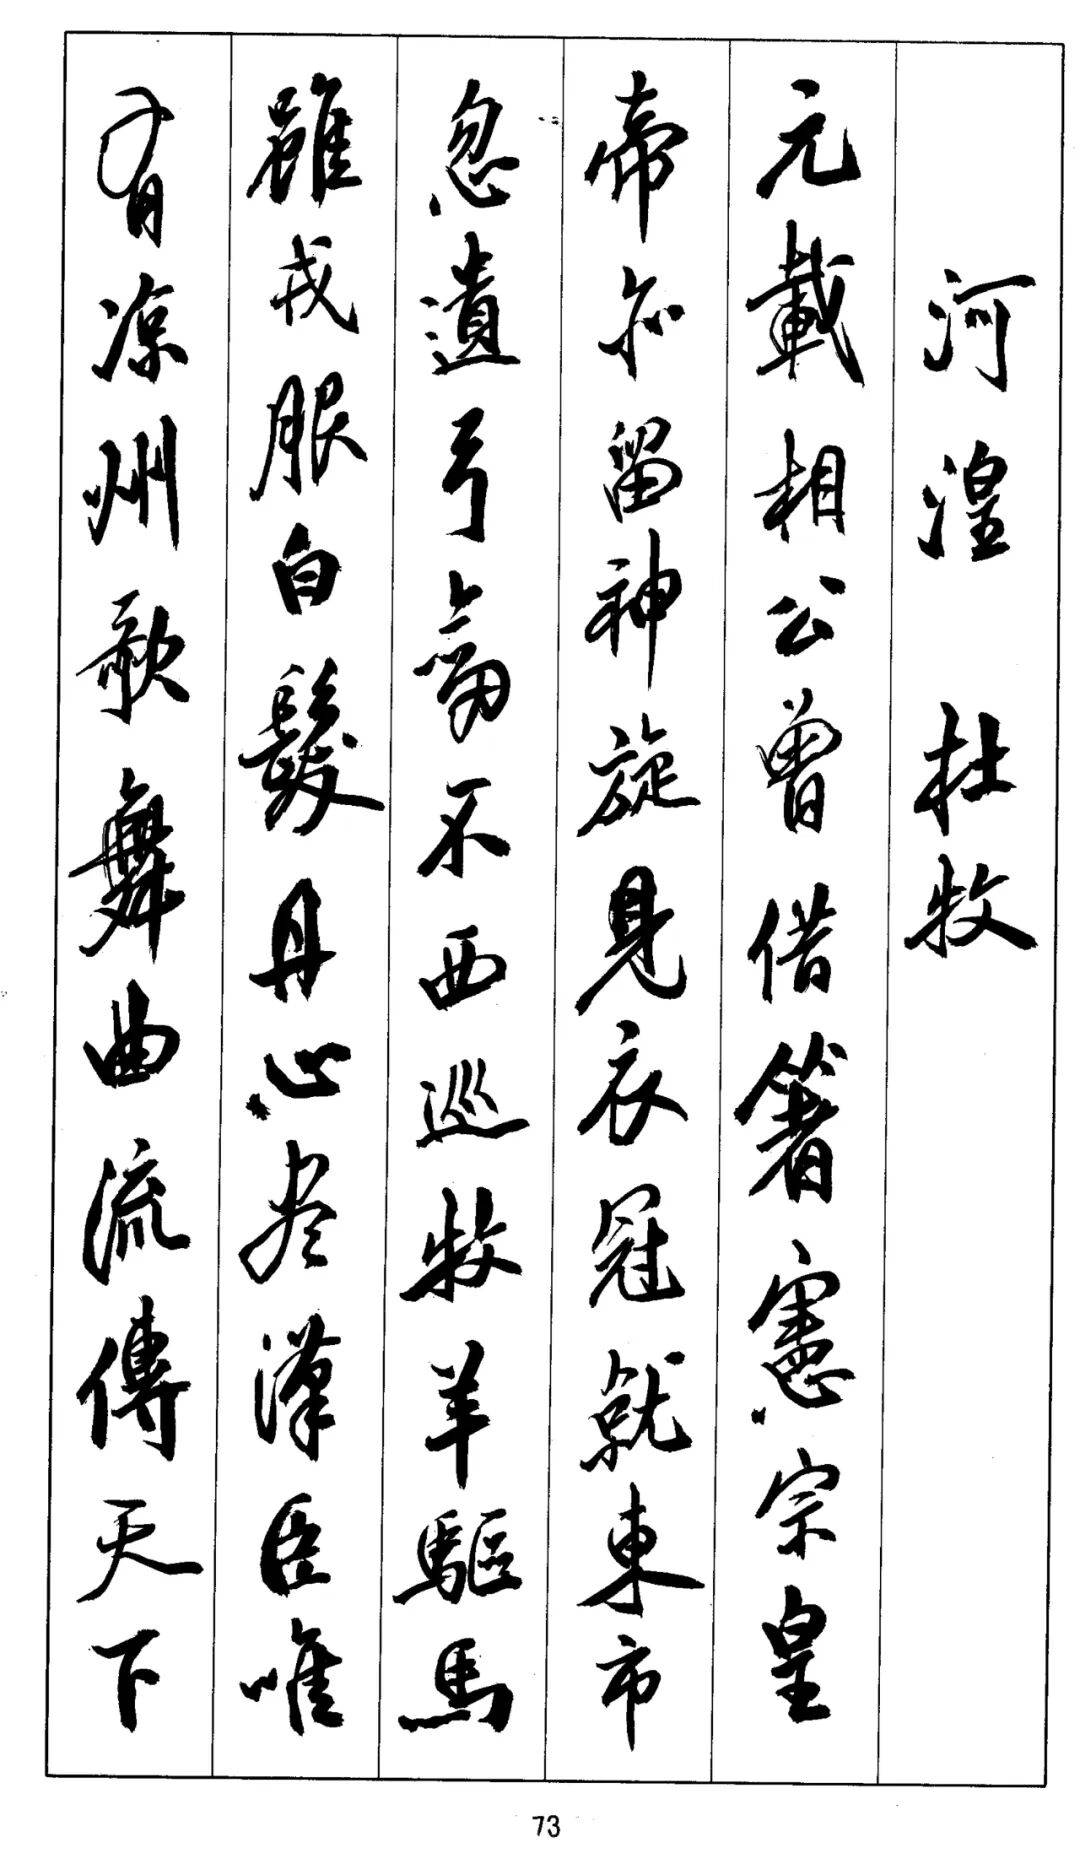 河湟 杜牧
元載相公曾借箸憲宗皇
帝亦留神旋見衣冠就東市
忽遺弓劍不西巡牧羊驅馬
雖戎服白髮丹心尽漢臣唯
有凉州歌舞曲流傳天下
73